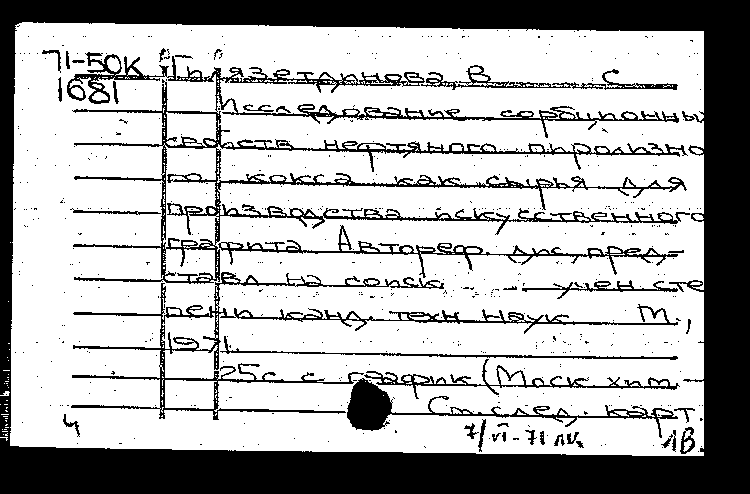 71-50К Гилязетдинова, В С
1681
Исследование сорбционных
свойств нефтяного пиролизно
го кокса как сырья для
производства искусственного
графита Автореф. дис, пред-
ставл на соиск учен сте
пени канд. техн наук М.,
1971.
25с. с график (Моск хим.-
См. след. карт.
4 7/VI-71 1В.